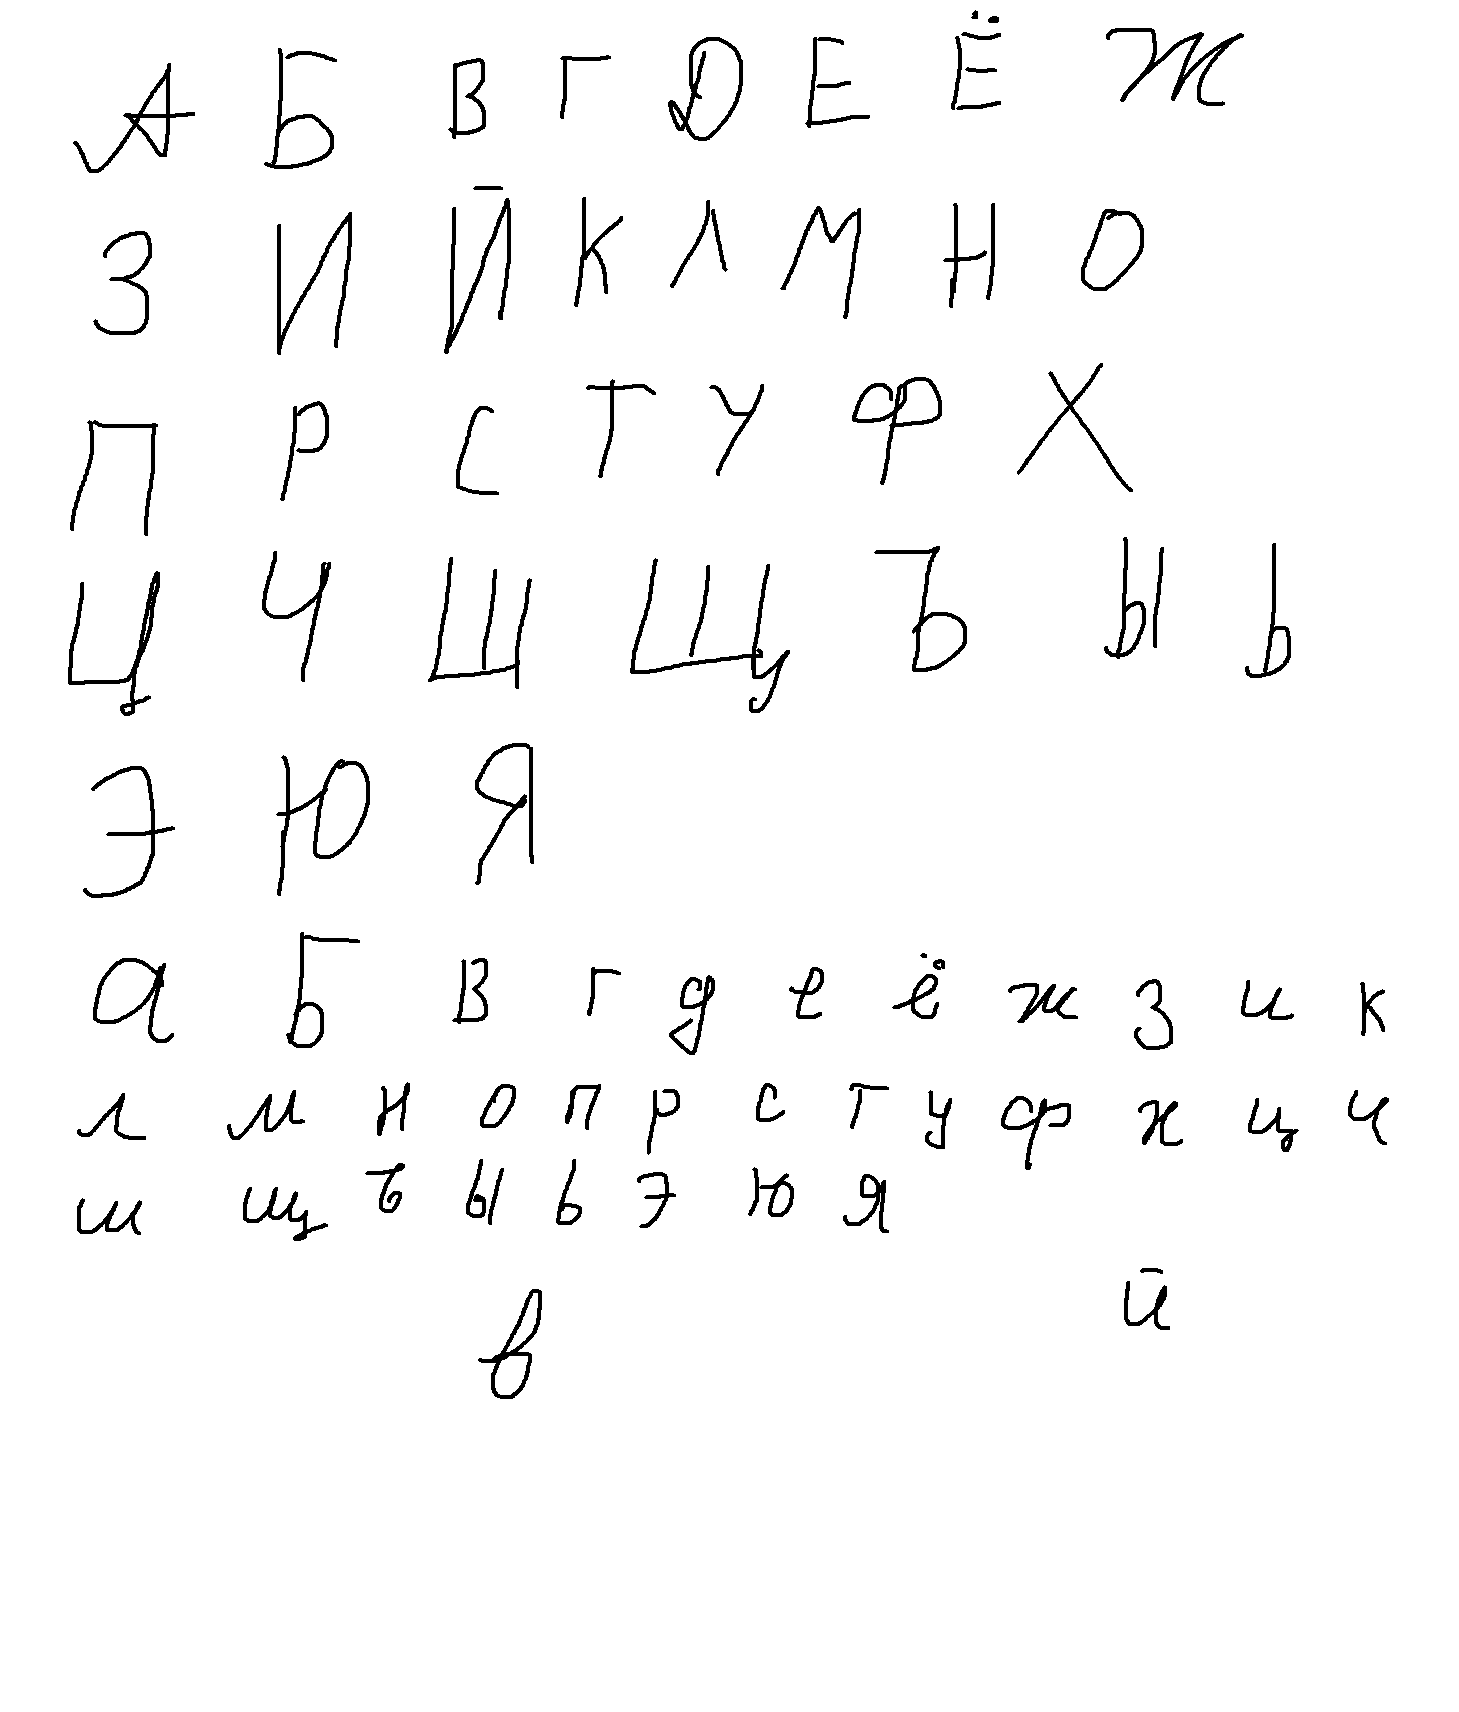 А Б В Г Д Е Ё Ж
З И Й К Л М Н О
П Р С Т У Ф Х
Ц Ч Ш Щ Ъ Ы Ь
Э Ю Я
а Б в г д е ё ж з и к
л м н о п р с т у ф х ц ч
ш щ ъ ы ь э ю я
й
в